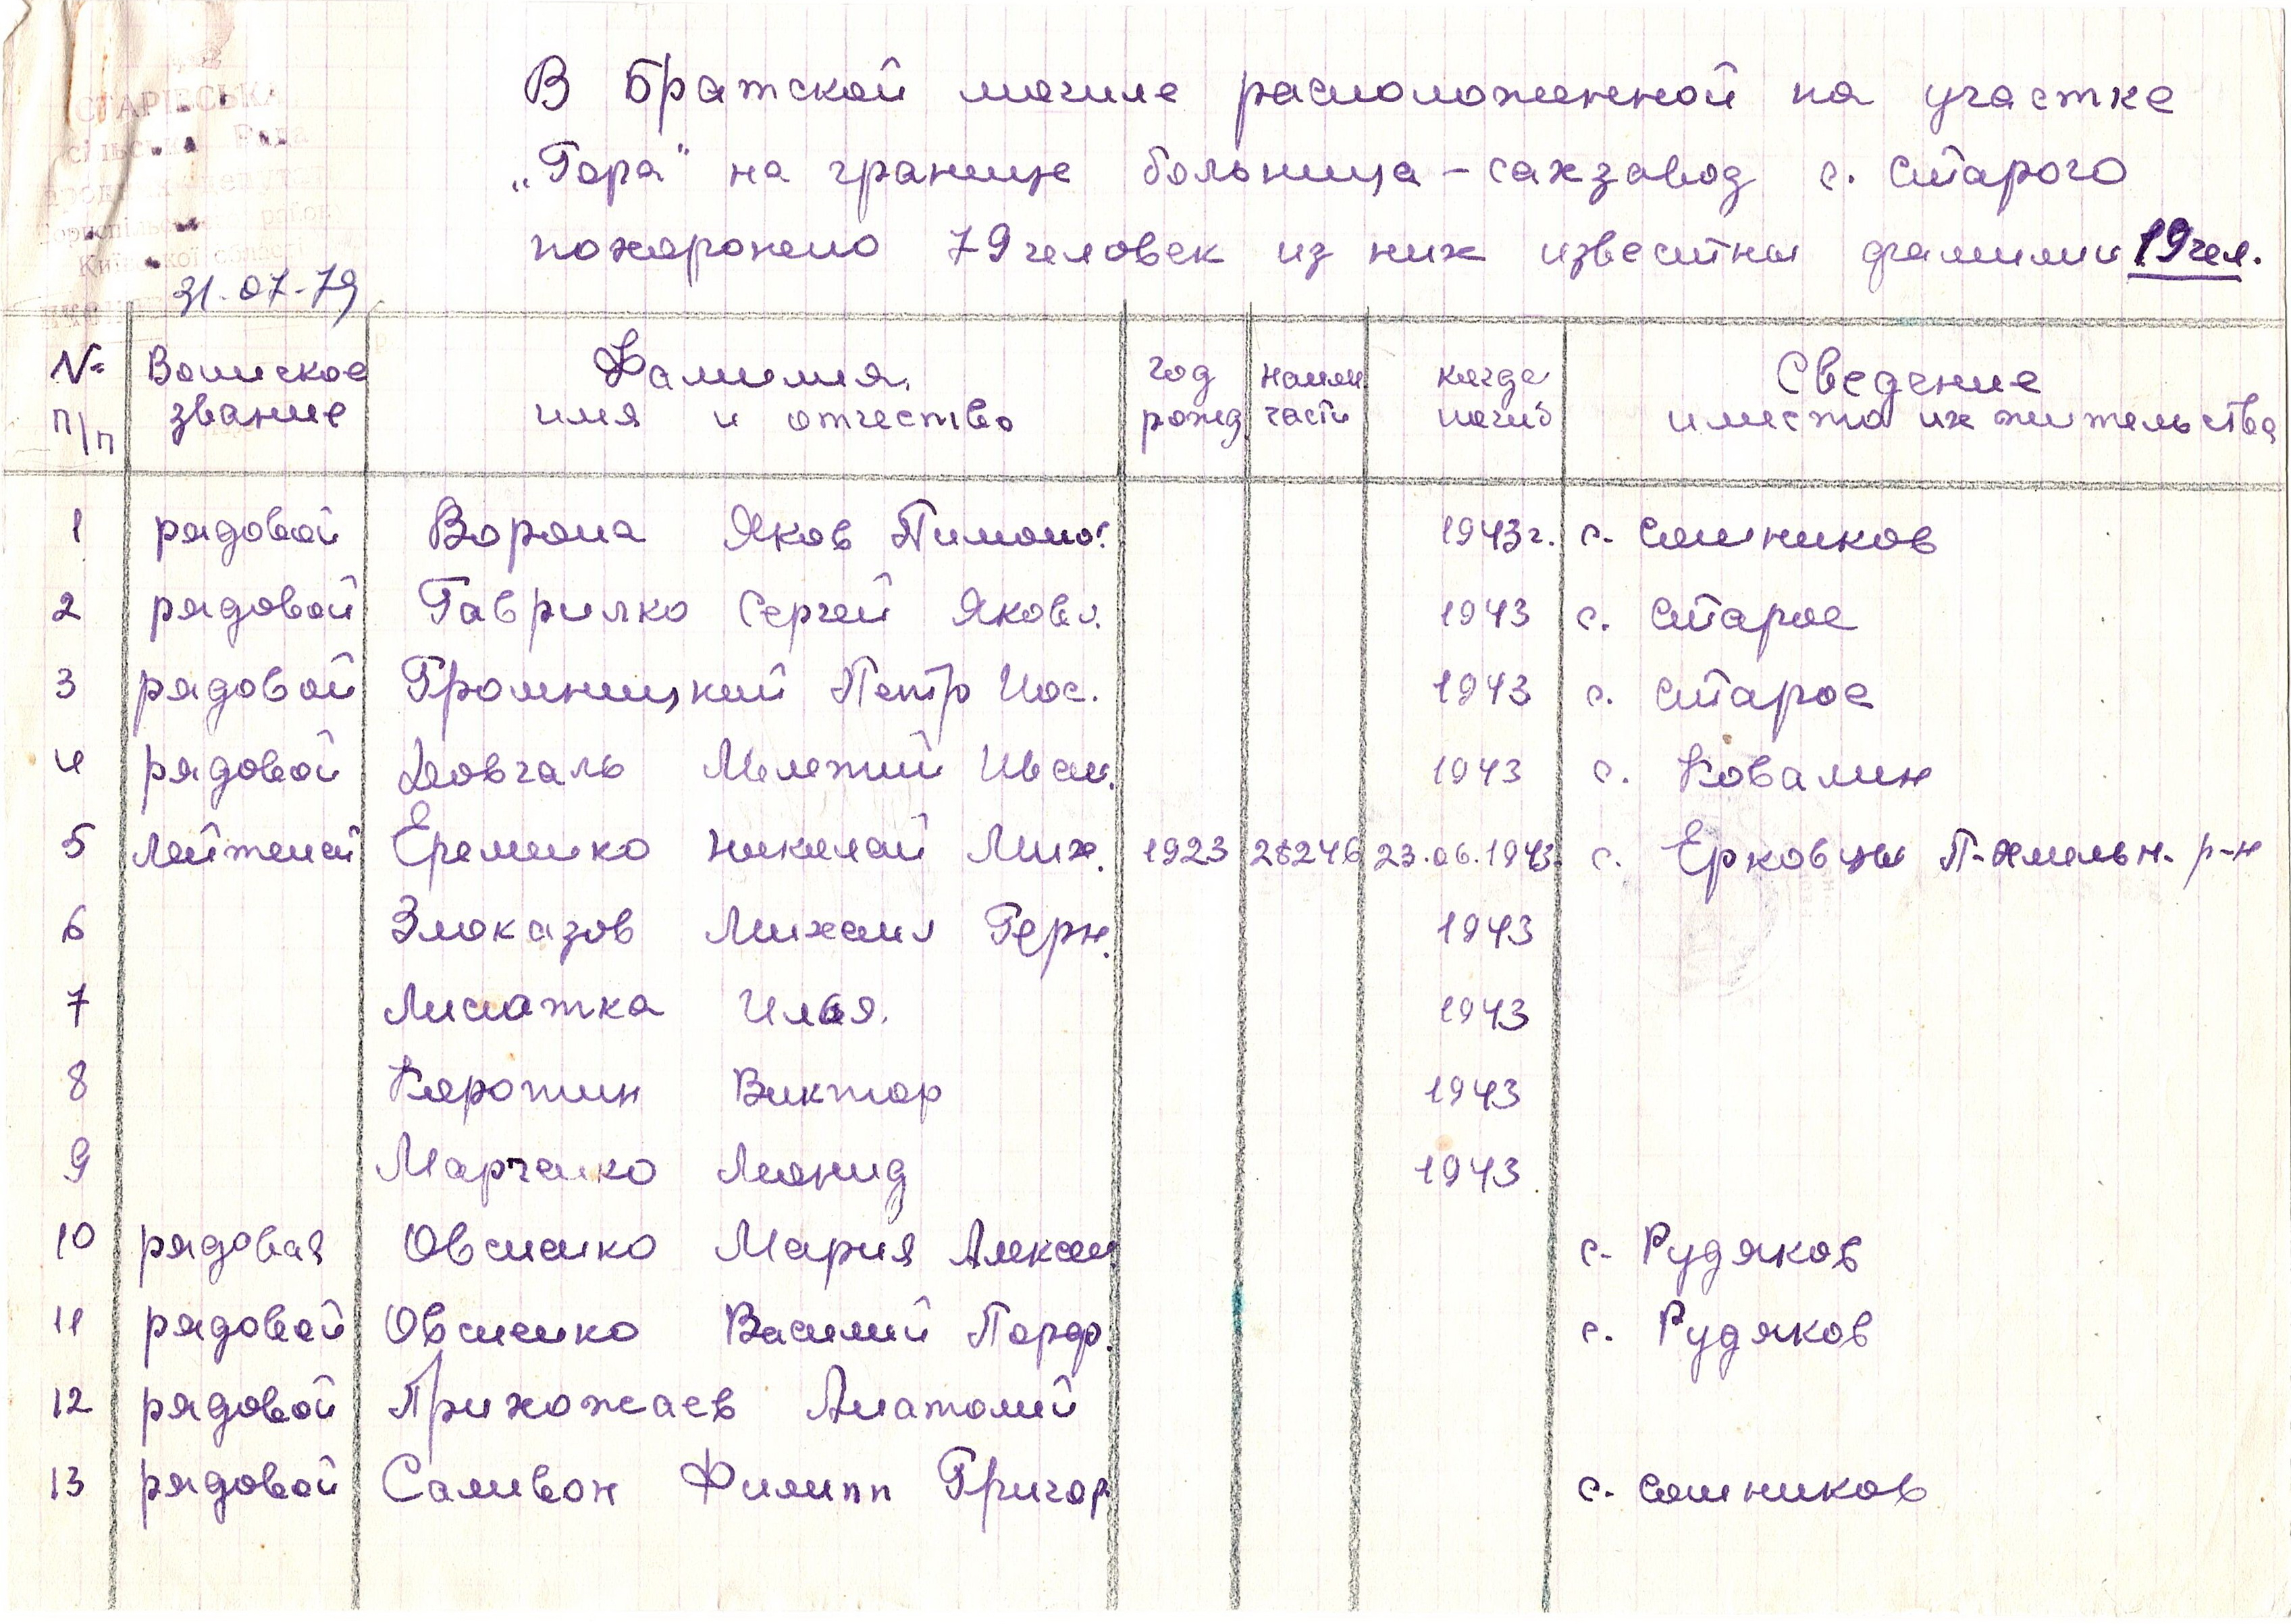 СТАРІВСЬКА
сільська Рада
Київської області
31.07.79
В Братской могиле расположенной на участке
„Гора" на границе больница - сахзавод с. Старого
похоронено 79 человек из них известны фамилии 19 чел.
№ п/п Воинское звание Фамилия, имя и отчество год рожд наим части когда погиб Сведение и место их жительства
1 рядовой Ворона Яков Пимоно. 1943г. с. Сошников
2 рядовой Гаврилко Сергей Яковл. 1943 с. Старое
3 рядовой Громницкий Петр Иос. 1943 с. Старое
4 рядовой Довгаль Мелетий Иван. 1943 с. Ковалин
5 лейтенант Еременко Николай Мих. 1923 28246 23.06.1943. с. Ерковцы П-Хмельн. р-н
6 Злоказов Михаил Герн. 1943
7 Лисиатка Илья. 1943
8 Каротин Виктор 1943
9 Марченко Леонид 1943
10 рядовая Овсиенко Мария Алексан с. Рудяков
11 рядовой Овсиенко Василий Порф. с. Рудяков
12 рядовой Прихожаев Анатолий
13 рядовой Саливон Филипп Григор с. Сошников